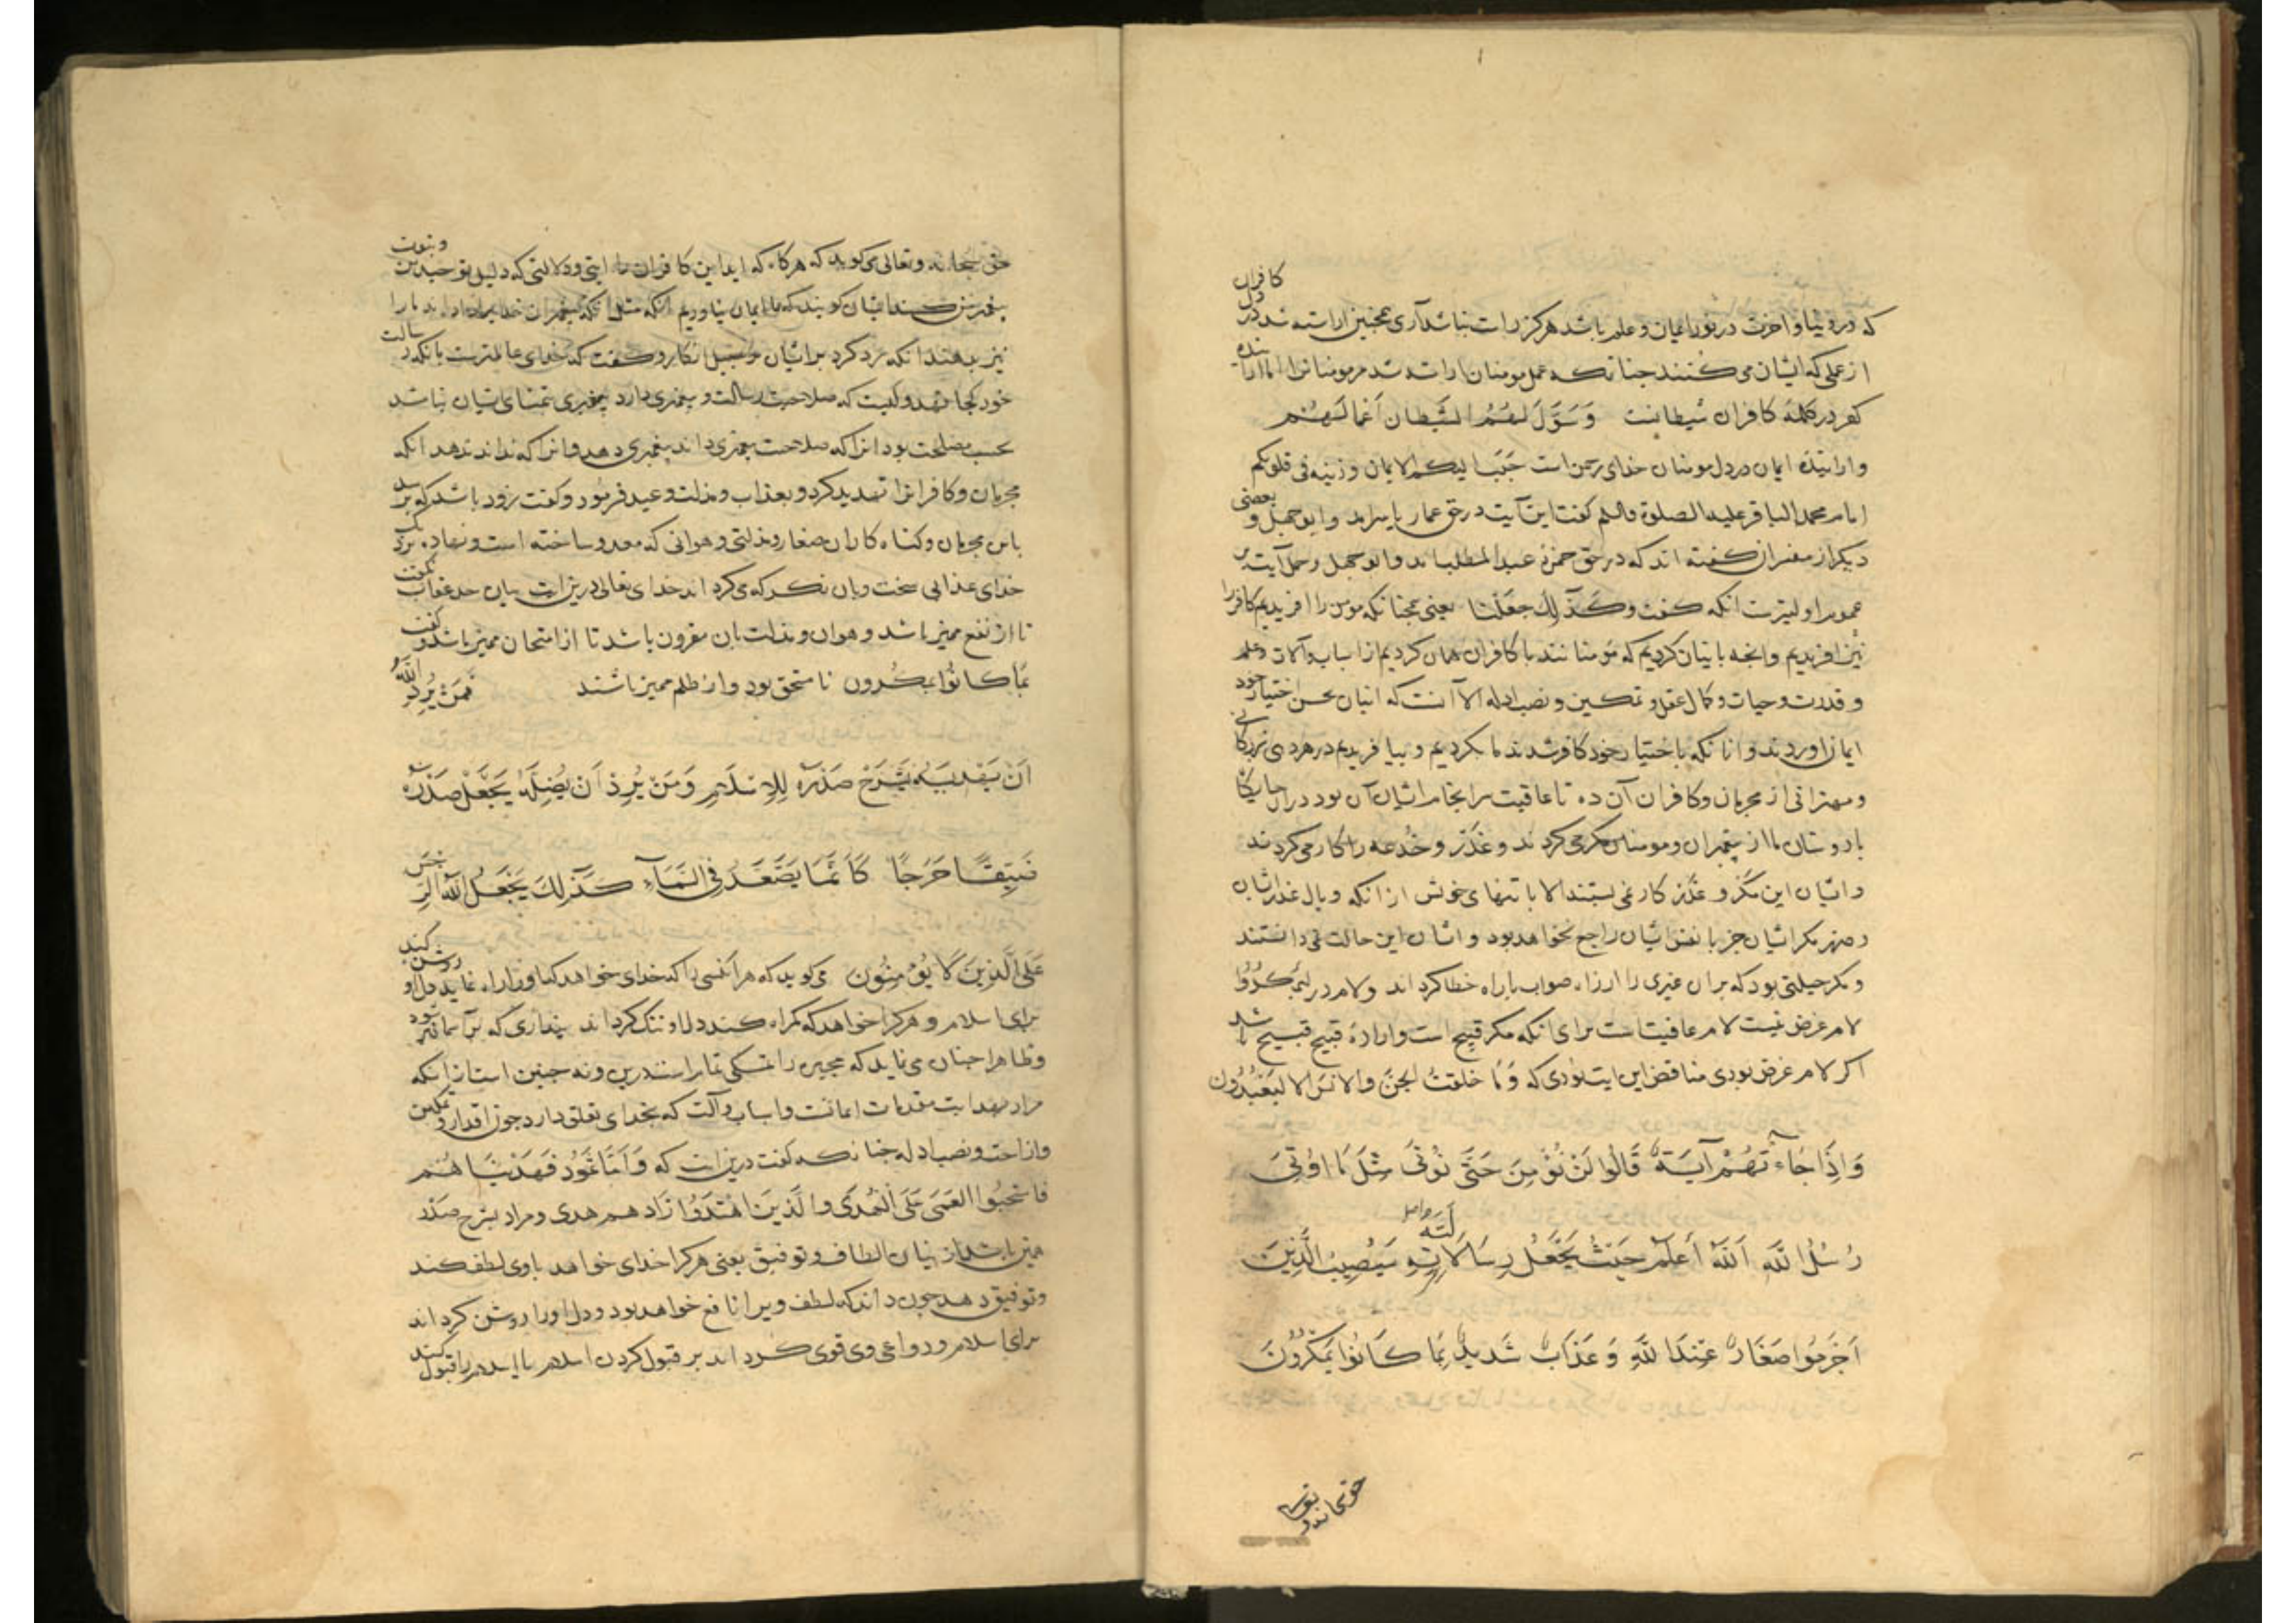 که در دنیا و اخرت در نور ایمان و علم باشد هرکز راست نباشد آری همچنین اراسته شد در دل کافران
از عملی که ایشان می کنند چنانکه عمل مومنان اراسته شد مر مومنانرا اما اراینده
کفر در کلمهٔ کافران شیطانست وَسَوَّلَ لَهُمُ الشَّیطان اَعْمالَهُم
و اراینده ایمان در دل مومنان خدای رحمن است حَبَّبَ الیکم الایمان و زینه فی قلوبکم
امام محمد الباقر علیه الصلوة والسلم کفت این آیت در حق عمار یاسر امد و ابو جهل و بعضی
دیکر از مفسران کفته اند که در حق حمزهٔ عبد المطلب امد و ابو جهل و حمل آیت بر
عموم اولیترست انکه کفت وَکَذٰلِكَ جَعَلْنا یعنی همچنانکه مومن را افریدیم کافر را
نیز افریدیم و انچه با ایشان کردیم که مومنانند با کافران همان کردیم از اسباب و آلات و علم
و قدرت و حیات و کمال عقل و تمکین و نصب ادله الا آنست که ایشان بحسن اختیار خود
ایمان اوردند و انانکه باختیار خود کافر شدند ما بکردیم و بیافریدیم در هر دهی بزرکانی
و مهترانی از مجرمان و کافران آن ده تا عاقبت سرانجام ایشان آن بود در آن جایکاه
با دوستان ما از پیغمبران و مومنان مکر می کردند و غَدْر و خُدعه را کار می کردند
و ایشان این مَکْر و غَدْر کار نمی بستند الا با تنهای خویش از انکه وبال غدر ایشان
و ضرر مکر ایشان جز با نفس ایشان راجع نخواهد بود و ایشان این حالت نمی دانستند
و مکر حیلتی بود که بران غیری را از راه صواب با راه خطا کرداند و لام در لِیَمْکُرُوا
لام غرض نیست لام عاقبتست برای انکه مکر قبیح است و ارادهٔ قبیح قبیح باشد
اکر لام غرض بودی مناقض این ایت بودی که وَمَا خلقتُ الجنَّ والانسَ الا لیَعْبُدُون
وَاِذَا جَاءَتْهُمْ آیَةٌ قَالُوا لَنْ نُؤْمِنَ حَتَّى نُؤْتَى مِثْلَ مَا اُوتِیَ
رُسُلُ اللهِ اَللهُ اَعْلَمُ حَیْثُ یَجْعَلُ رِسَالَاتِهِ سَیُصِیبُ الَّذِینَ
اَجْرَمُوا صَغَارٌ عِنْدَ اللهِ وَعَذَابٌ شَدِیدٌ بِمَا کَانُوا یَمْکُرُونَ
حق سبحانه و تعالی
حق سبحانه و تعالی می کوید که هرکاه که اید این کافران را ایتی و دلالتی که دلیل توحید من و نبوت
پیغمبر من کند ایشان کویند که ما ایمان نیاوریم انکه مثل انکه پیغمبران خدایرا داده اند ما را
نیز بدهند انکه رد کرد بر ایشان بر سبیل انکار و کفت که خدای عالمترست بانکه رسالت
خود کجا نهد و کیست که صلاحیت رسالت و پیغمبری دارد پیغمبری بتمنای ایشان نباشد
بحسب مصلحت بود انرا که صلاحیت پیغمبری داند پیغمبری دهد و انرا که نداند ندهد انکه
مجرمان و کافرانرا تهدید کرد و بعذاب و مذلت وعید فرمود و کفت زود باشد که برسد
باین مجرمان و کناه کاران صغار و مذلتی و هوانی که معد و ساخته است و نهاده نزدیک
خدای عذابی سخت و بان مکر که می کرده اند خدای تعالی درین ایت بیان حد عقاب بکفت
تا از نفع ممیز باشد و هوان و مذلت بان مقرون باشد تا از امتحان ممیز باشد و کفت
بِمَا کَانُوا یَمْکُرُون تا مستحق بود و از ظلم ممیز باشند فَمَنْ یُرِدِ اللهُ
اَنْ یَهْدِیَهُ یَشْرَحْ صَدْرَهُ لِلاِسْلَامِ وَمَنْ یُرِدْ اَنْ یُضِلَّهُ یَجْعَلْ صَدْرَهُ
ضَیِّقًا حَرَجًا کَاَنَّمَا یَصَّعَّدُ فِی السَّمَآءِ کَذٰلِكَ یَجْعَلُ اللهُ الرِّجْسَ
عَلَى الَّذِینَ لَا یُؤْمِنُون می کوید که هر انکسی را که خدای خواهد که او را راه نماید دل او روشن کند
برای اسلام و هرکرا خواهد که کمراه کند دل او تنک کرداند پنداری که بر آسمان می شود
و ظاهرا چنان می نماید که مجبره را تمسکی تمام است درین و نه چنین است از انکه
مراد بهدایت مقدمات ایمانست و اسباب و آلت که بخدای تعلق دارد چون اقدار و تمکین
و ازاحت و نصب ادله چنانکه کفت درین ایت که وَاَمَّا ثَمُودُ فَهَدَیْنَاهُم
فاستحبّوا العَمَى عَلَى الْهُدَى والَّذِینَ اهْتَدَوْا زادهم هدی و مراد بشرح صَدْر
همین باشد از بیان الطاف و توفیق یعنی هرکرا خدای خواهد با وی لطف کند
و توفیق دهد چون داند که لطف ویرا نافع خواهد بود و دل او را روشن کرداند
برای اسلام و دواعی وی قوی کرداند بر قبول کردن اسلام تا اسلام را قبول کند